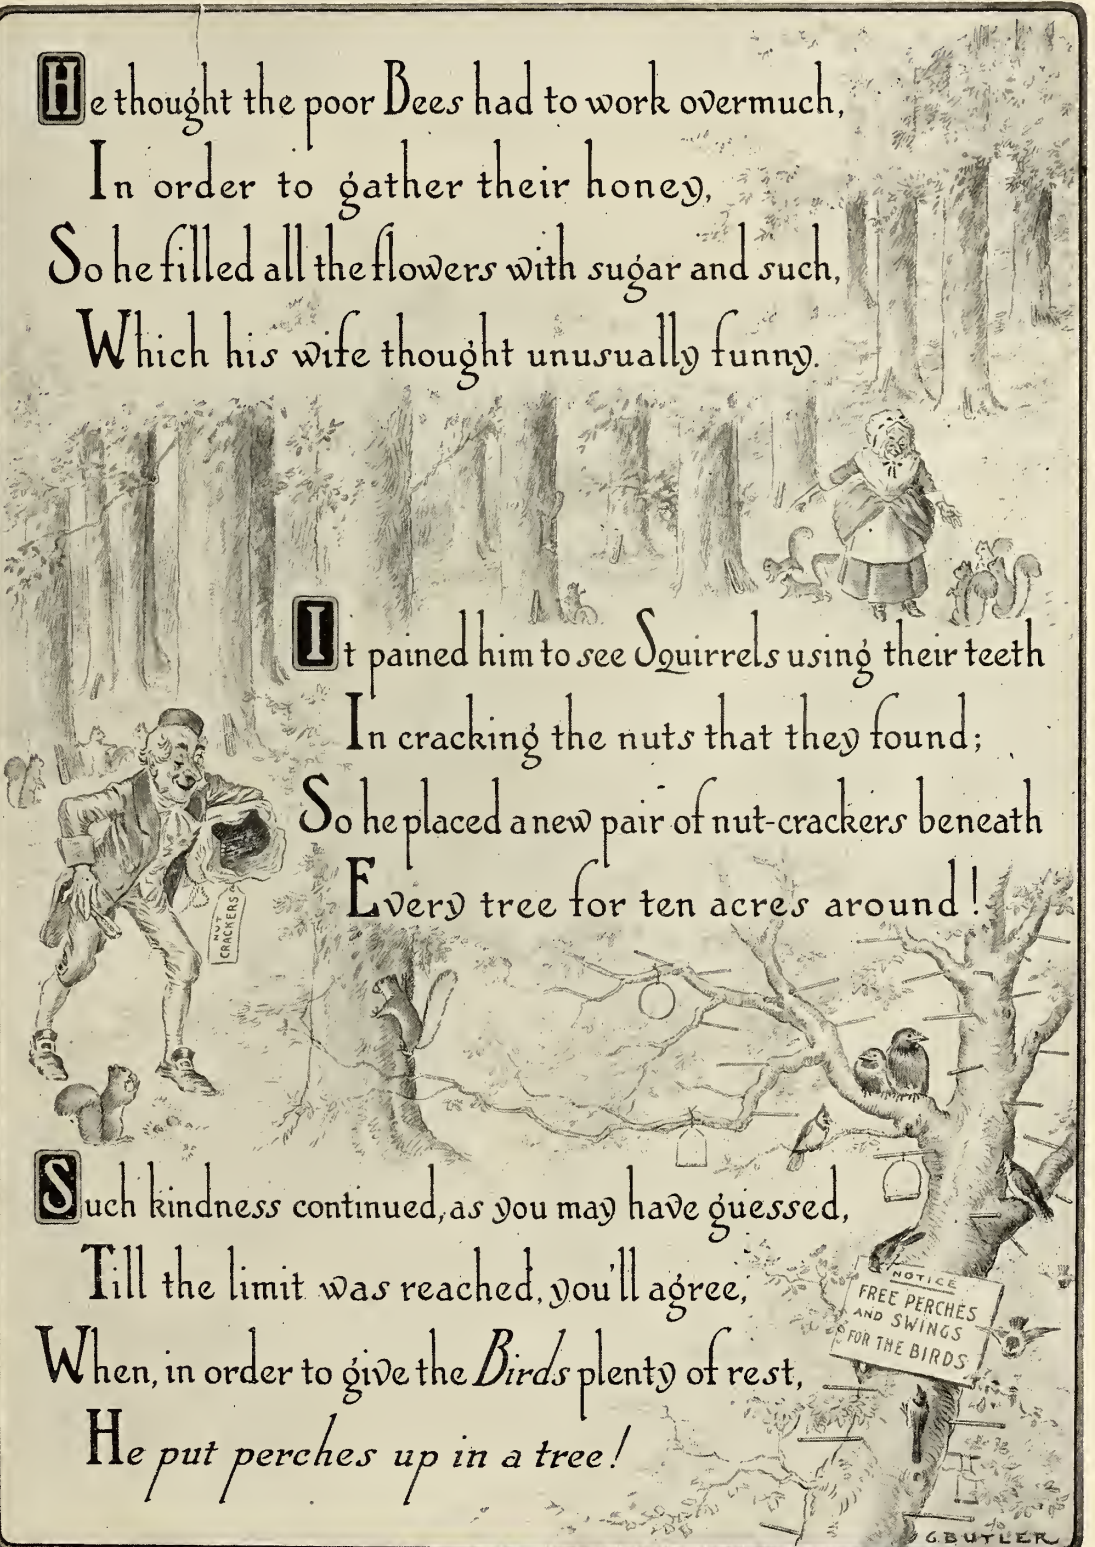 He thought the poor Bees had to work overmuch,
In order to gather their honey,
So he filled all the flowers with sugar and such,
Which his wife thought unusually funny.
It pained him to see Squirrels using their teeth
In cracking the nuts that they found;
So he placed a new pair of nut-crackers beneath
Every tree for ten acres around!
NUT
CRACKERS
Such kindness continued, as you may have guessed,
Till the limit was reached, you'll agree,
When, in order to give the Birds plenty of rest,
He put perches up in a tree!
NOTICE
FREE PERCHES
AND SWINGS
FOR THE BIRDS
G. BUTLER